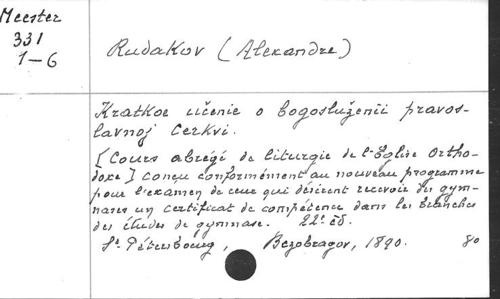 Meester
331
1-6
Rudakov (Alexandre)
Kratkoe učenie o bogosluženii pravos-
lavnoj Cerkvi.
[Cours abrégé de liturgie de l'Eglise Ortho-
doxe] conçu conformément au nouveau programme
pour l'examen de ceux qui désirent recevoir des gym-
nases un certificat de compétence dans les branches
des études de gymnase. 22e éd.
St. Pétersbourg, Bezobrazov, 1890. 80